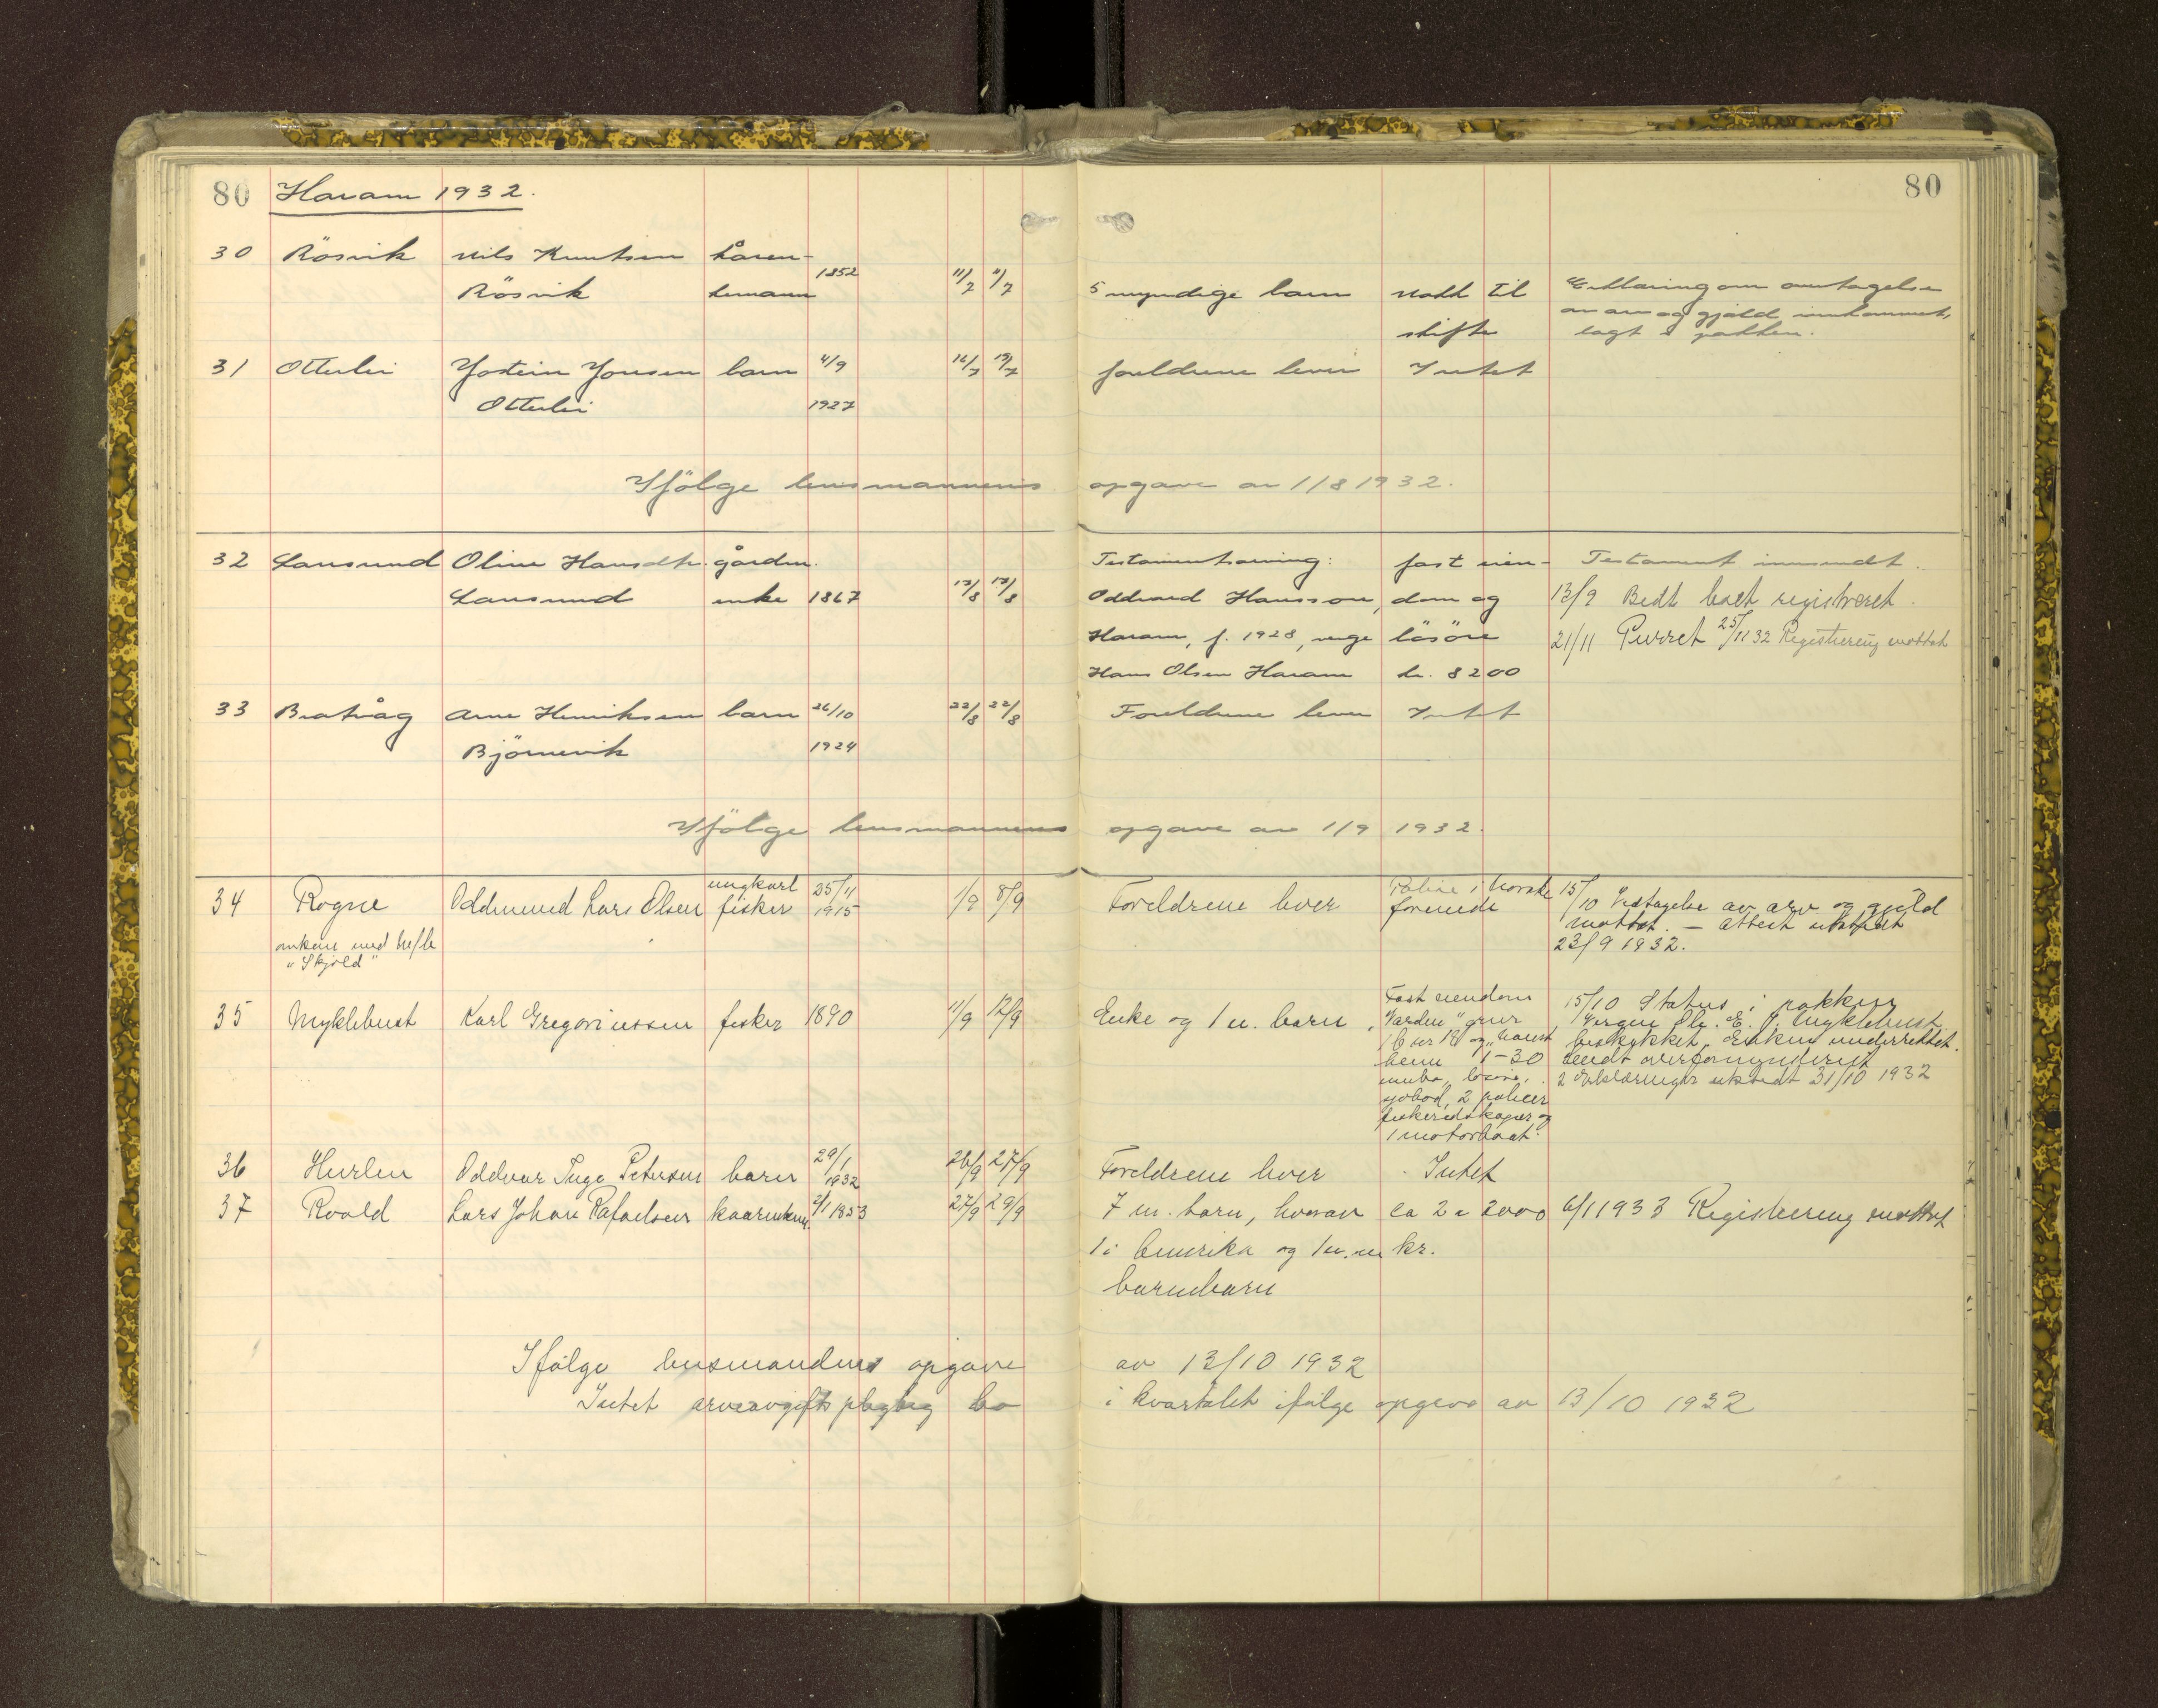 80 Haram 1932. 80
30 Rösvik Nils Knutsen kåren-
Rösvik kemann 1852 11/7 11/7 5 myndige barn natt til Erklæring om overtagelse
skifte av arv og gjæld innkommet,
lagt i pakken.
31 Otterlei Jostein Jonsen barn 4/9 16/7 19/7 foreldrene lever Intet
Otterlei 1927
Ifölge lensmannens opgave av 1/8 1932.
32 Longund Oline Hansdtr. gården. Testamentsarving: fast eien- Testament innsendt.
enke 1867 13/8 13/8 Oddvard Hansson, dom og 13/9 Bedt boet registreret.
Haram, f. 1928, verge lösöre 21/11 Purret 25/11 32 Registrering mottat
Hans Olsen Haram kr. 8200
33 Bratvåg Arne Henriksen barn 26/10 22/8 22/8 Foreldrene lever Intet
Björnevik 1924
Ifölge lensmannens opgave av 1/9 1932.
34 Rogne Oddmund Lars Olsen ungkarl fisker 25/11 1915 1/9 8/9 Foreldrene lever Polise i Norske forenede 15/10 Vedtagelse av arv og gjeld
mottat. — Attest utstedt
omkom med m/k 23/9 1932.
"Skjold"
35 Myklebust Karl Gregoriussen fisker 1890 11/9 12/9 Enke og 1 u. barn Fast eiendom 15/10 Status i pakken
"Varden" gnr Verge E. J. Myklebust
og "Naust beskikket, Enken underrettet.
1-30 sendt overformynderiet
innbo, losøre, 2 Erklæringer utstedt 31/10 1932
sjobod, 2 policer
fiskeredskaper og
1 motorbaat.
36 Hurlen Oddvar Inge Petersen barn 29/1 1932 26/9 27/9 Foreldrene lever Intet
37 Roald Lars Johan Rafaelsen kaarenkem. 2/1 1853 27/9 29/9 7 m. barn, hvorav ca 2 a 2000 6/1 1933 Registrering mottat
1 i Amerika og 1 u. m kr.
barnebarn
Ifølge lensmandens opgave av 13/10 1932
Intet arveavgiftspligtig bo i kvartalet ifølge opgave av 13/10 1932